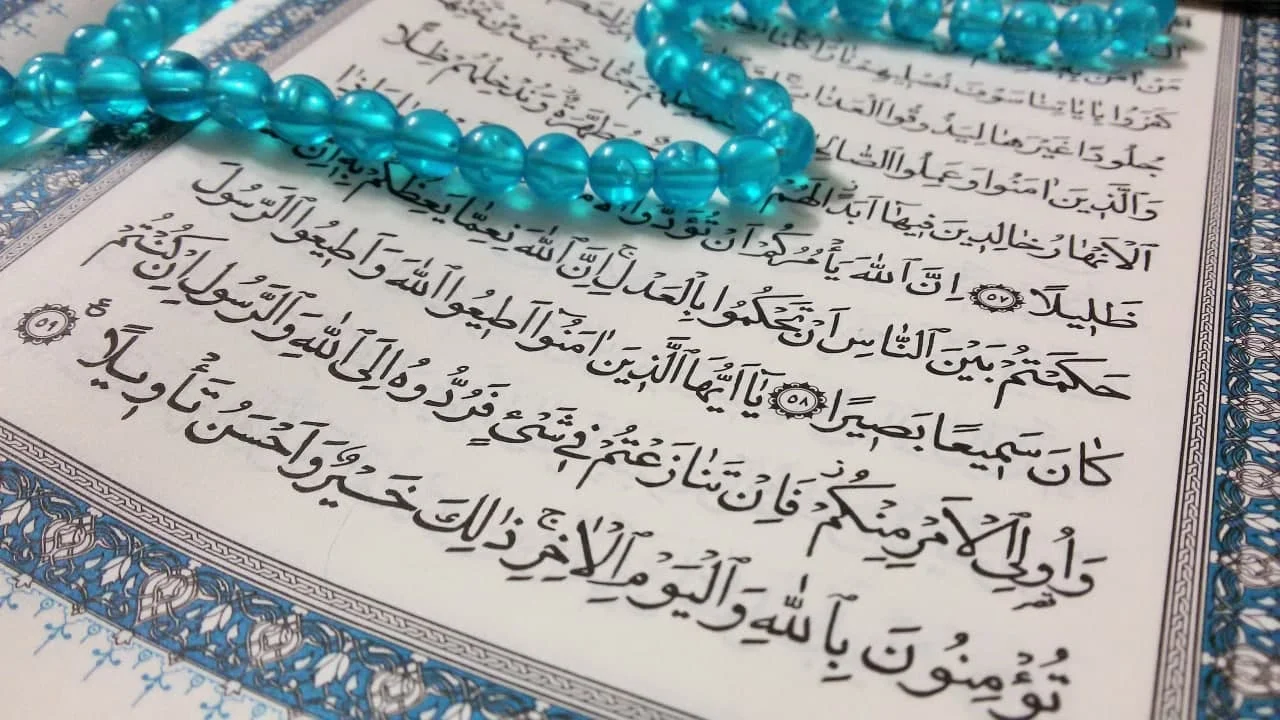 مَنْ اٰمَنَ
كَفَرُوا بِاٰيَاتِنَا سَوْفَ نُصْلِيهِمْ نَارًا كُلَّمَا
جُلُودًا غَيْرَهَا لِيَذُوقُوا الْعَذَابَ
وَالَّذِينَ اٰمَنُوا وَعَمِلُوا الصَّالِحَاتِ جَنَّاتٍ تَجْرِى مِنْ تَحْتِهَا
الْاَنْهَارُ خَالِدِينَ فِيهَا اَبَدًا لَهُمْ مُطَهَّرَةٌ وَنُدْخِلُهُمْ ظِلًّا
ظَلِيلًا ٥٧ اِنَّ اللّٰهَ يَأْمُرُكُمْ اَنْ تُؤَدُّوا وَاِذَا
حَكَمْتُمْ بَيْنَ النَّاسِ اَنْ تَحْكُمُوا بِالْعَدْلِ اِنَّ اللّٰهَ نِعِمَّا يَعِظُكُمْ بِهِ اِنَّ
كَانَ سَمِيعًا بَصِيرًا ٥٨ يَا اَيُّهَا الَّذِينَ اٰمَنُوا اَطِيعُوا اللّٰهَ وَاَطِيعُوا الرَّسُولَ
وَاُولِى الْاَمْرِ مِنْكُمْ فَاِنْ تَنَازَعْتُمْ فِى شَىْءٍ فَرُدُّوهُ اِلَى اللّٰهِ وَالرَّسُولِ اِنْ كُنْتُمْ
تُؤْمِنُونَ بِاللّٰهِ وَالْيَوْمِ الْاٰخِرِ ذٰلِكَ خَيْرٌ وَاَحْسَنُ تَأْوِيلًا ٥٩